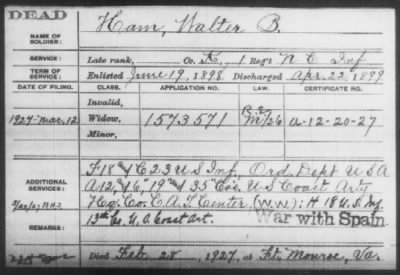 DEAD
NAME OF SOLDIER: Ham, Walter B.
SERVICE: Late rank, Co. K, 1 Reg't N C Inf
TERM OF SERVICE: Enlisted June 19, 1898 Discharged Apr. 22, 1899
DATE OF FILING. CLASS. APPLICATION NO. LAW. CERTIFICATE NO.
Invalid,
1927-Mar. 12 Widow, 1573571 A-12-20-27
Minor,
F 18" & C 23 U S Inf., Ord. Dept U S A
ADDITIONAL SERVICES: A 12, 19" 35" Cos. U S Coast Arty
Hq. Co. C. A. T. Center (W.W.): H 18 U.S. Inf
13th Co. U.S. Coast Art. War with Spain
REMARKS:
Died Feb. 28, 1927, at Ft. Monroe, Va.